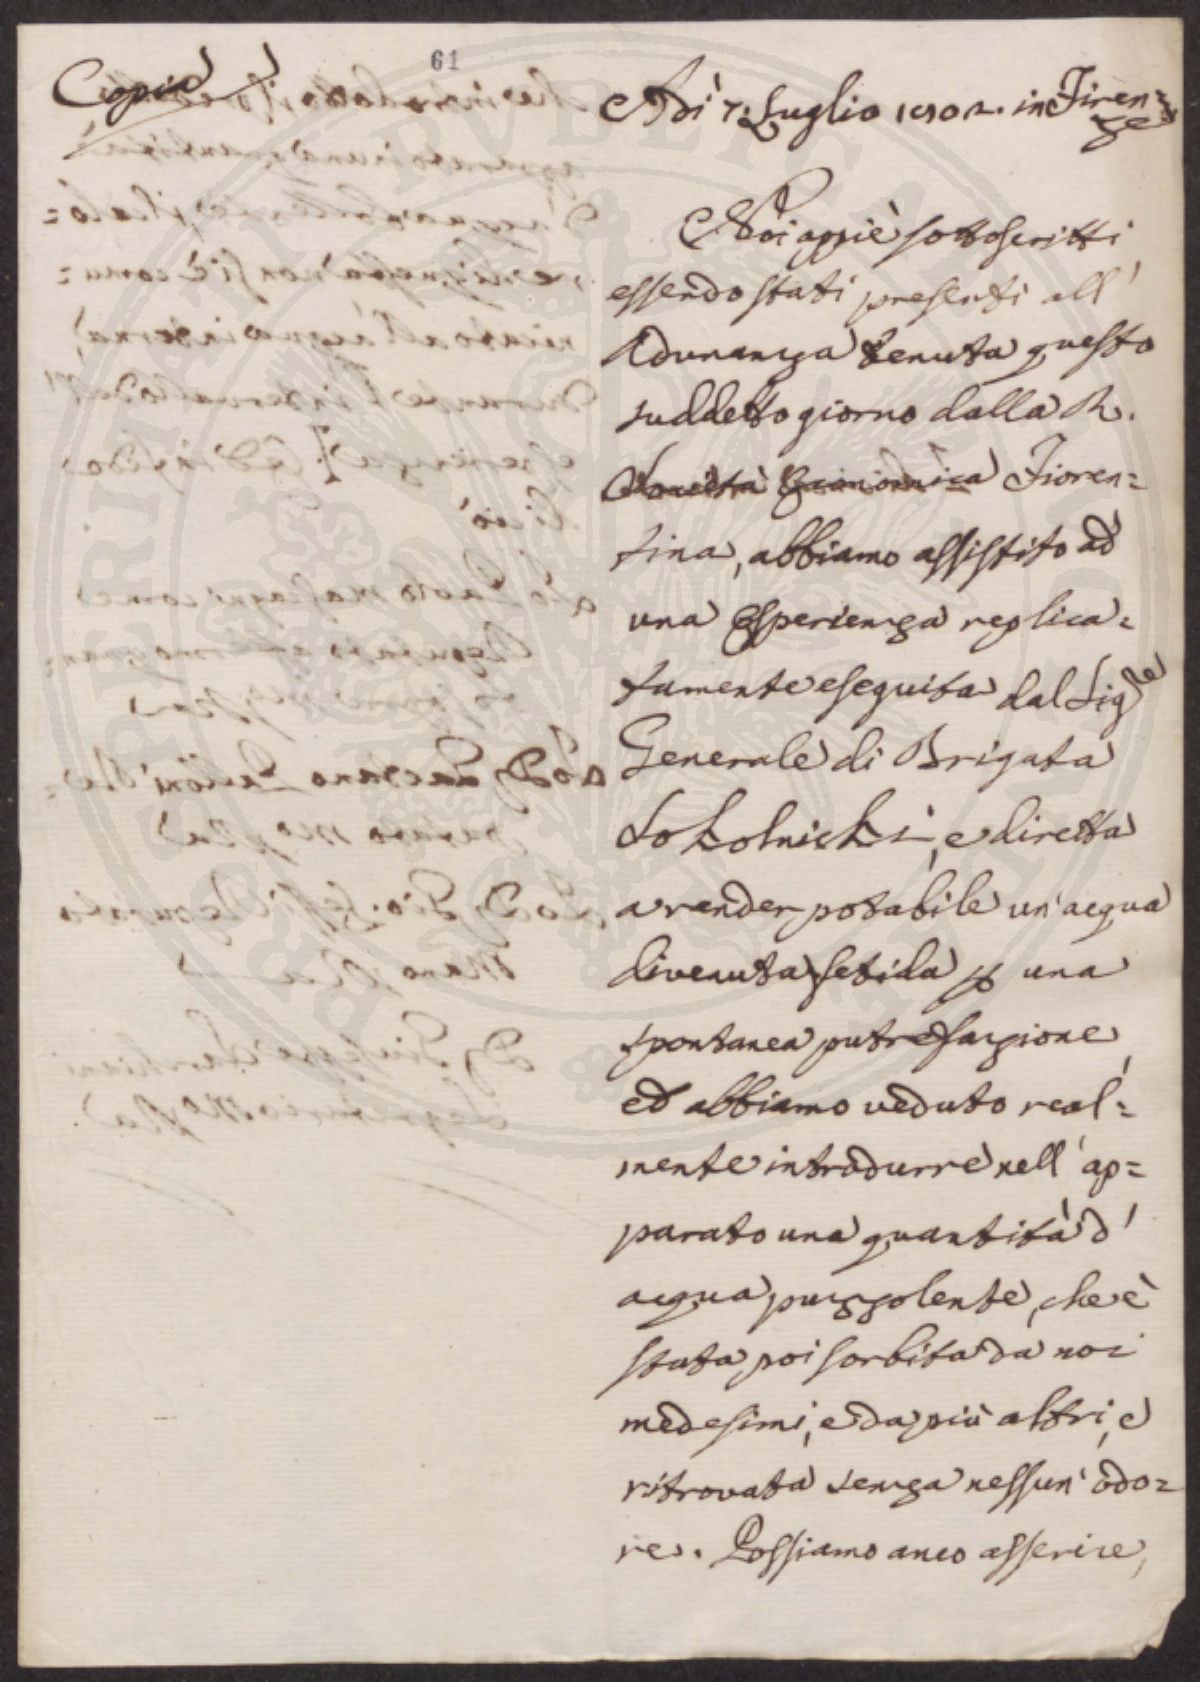 61
Copia
Adì 7. Luglio 1802. in Firen=
ze
Noi appiè sottoscritti
essendo stati presenti all'
Adunanza tenuta questo
suddetto giorno dalla R.
Società Economica Fioren=
tina, abbiamo assistito ad
una Esperienza replica=
tamente eseguita dal Sig.re
Generale di Brigata
Sokolnicki, e diretta
a render potabile un'acqua
divenuta fetida p una
spontanea putrefazione,
ed abbiamo veduto real=
mente introdurre nell'ap=
parato una quantità d'
acqua puzzolente, che è
stata poi sorbita da noi
medesimi, e da più altri, e
ritrovata senza nessun'odo=
re. Possiamo anco asserire,